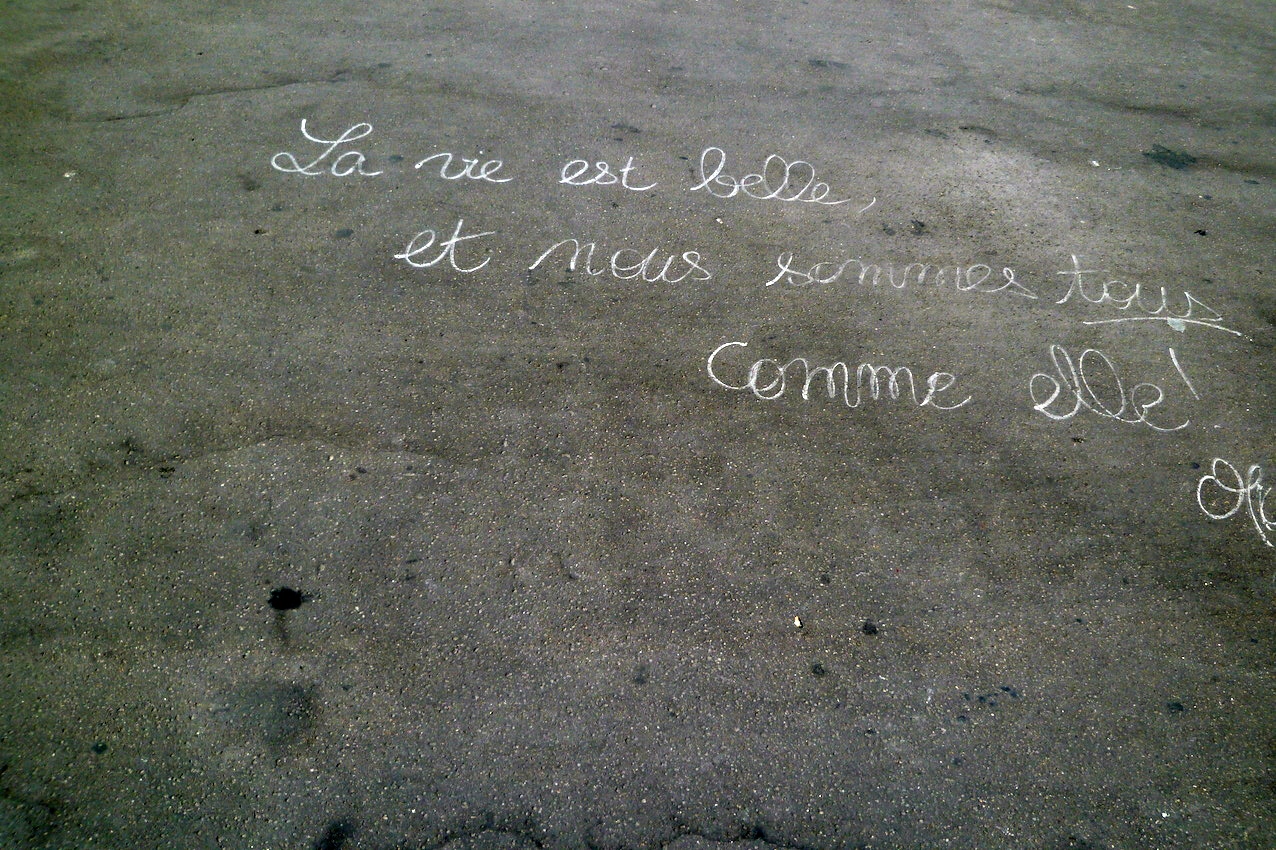 La vie est belle,
et nous sommes tous
comme elle!